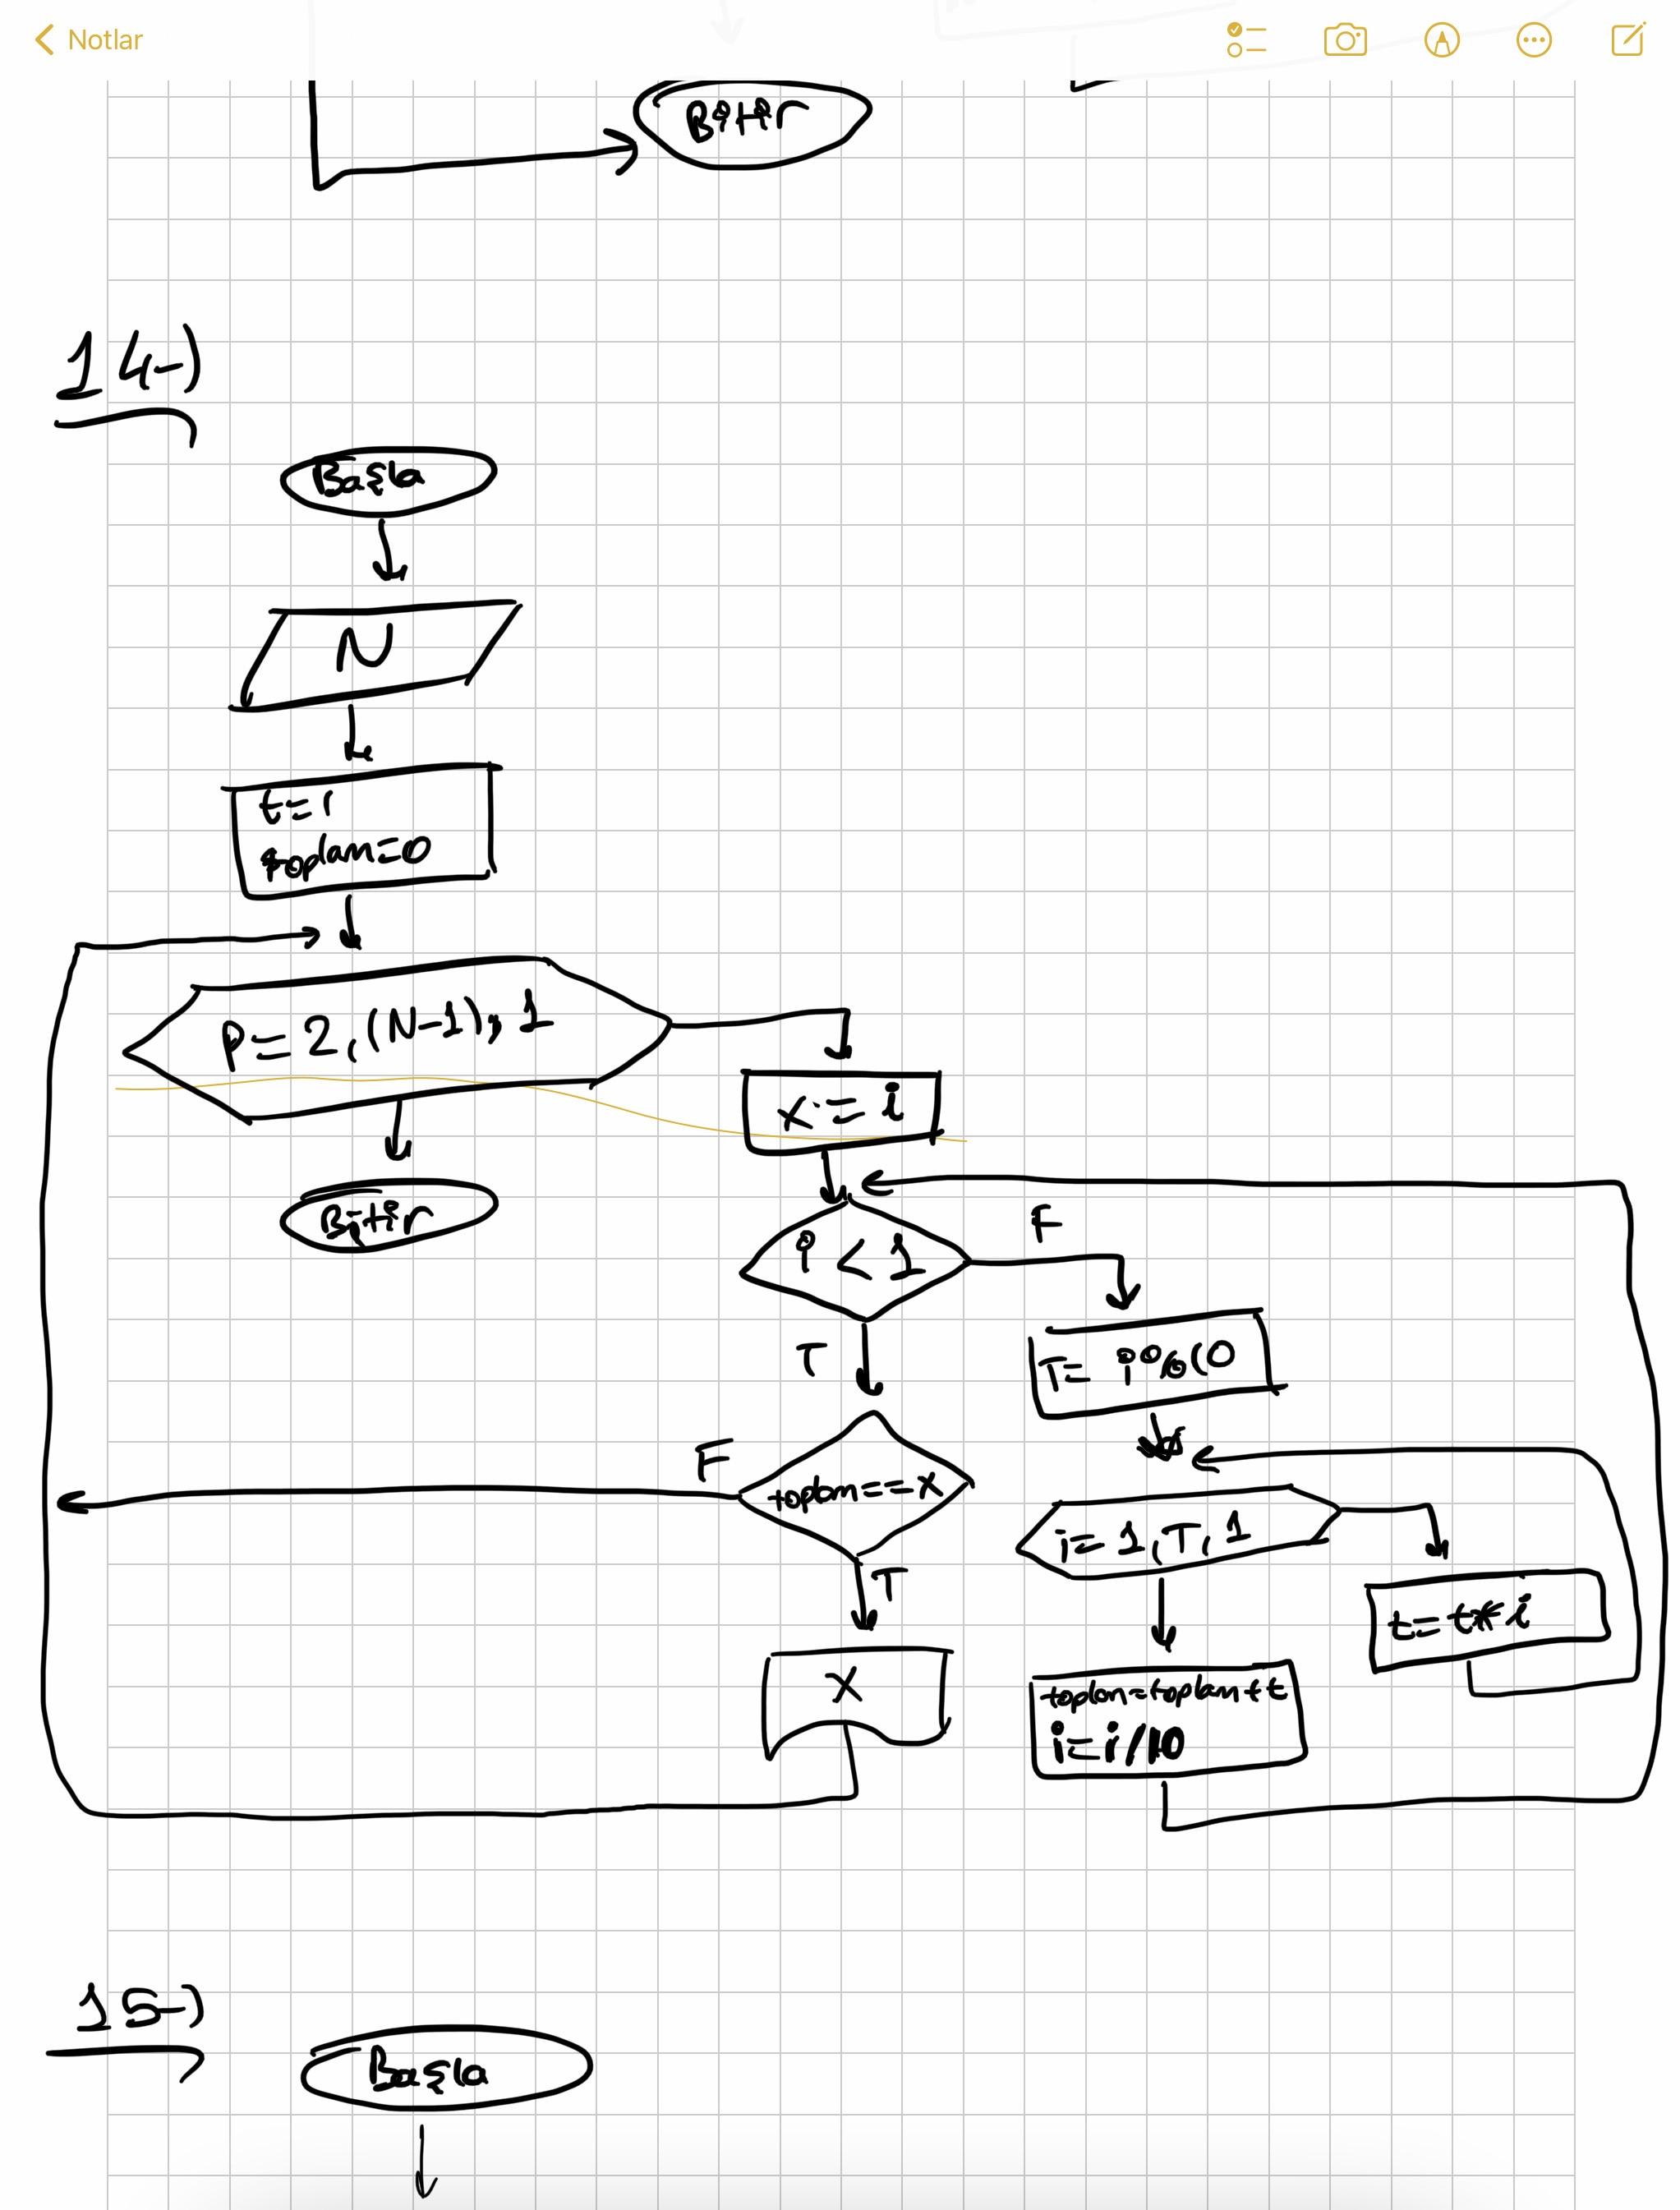 Notlar
Bitir
14-)
Başla
N
t=1
toplam=0
P=2,(N-1),1
x=i
Bitir
i<1
F
T
T=i%10
F
toplam==x
i=1,T,1
T
t=t*i
X
toplam=toplam+t
i=i/10
15-)
Başla